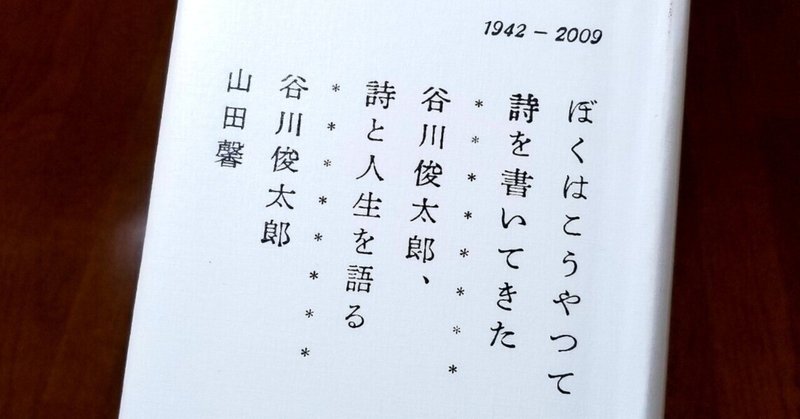 1942 – 2009
ぼくはこうやって
詩を書いてきた
* * * * * * * *
谷川俊太郎、
詩と人生を語る
* * * * * * * *
谷川俊太郎
山田馨